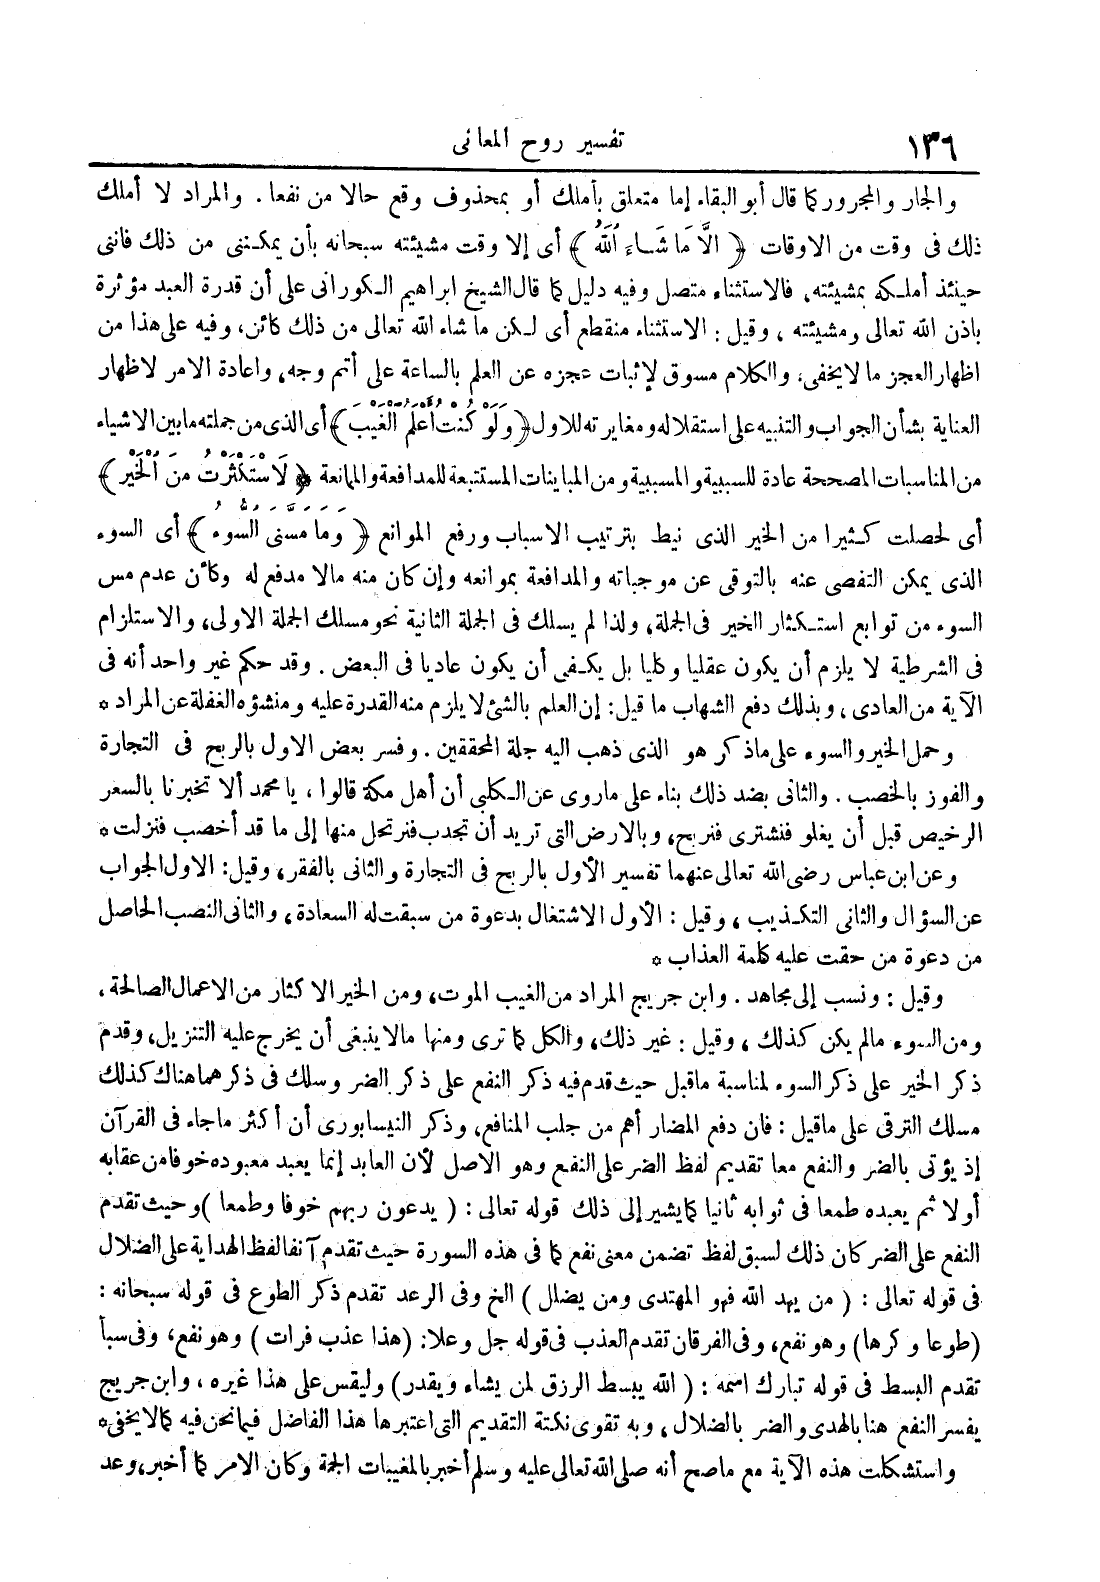 ١٣٦ تفسير روح المعانى
والجار والمجرور كما قال أبو البقاء إما متعلق بأملك أو بمحذوف وقع حالا من نفعا . والمراد لا أملك
ذلك فى وقت من الاوقات ﴿ الَّا مَا شَاءَ اللهُ ﴾ أى إلا وقت مشيئته سبحانه بأن يمكننى من ذلك فاننى
حينئذ أملكه بمشيئته، فالاستثناء متصل وفيه دليل كما قال الشيخ ابراهيم الكورانى على أن قدرة العبد مؤثرة
باذن الله تعالى ومشيئته ، وقيل : الاستثناء منقطع أى لكن ما شاء الله تعالى من ذلك كائن، وفيه على هذا من
اظهار العجز ما لا يخفى، والكلام مسوق لإثبات عجزه عن العلم بالساعة على أتم وجه، واعادة الامر لاظهار
العناية بشأن الجواب والتنبيه على استقلاله ومغايرته للاول ﴿ وَلَوْ كُنْتُ أَعْلَمُ الْغَيْبَ ﴾ أى الذى من جملته ما بين الاشياء
من المناسبات المصححة عادة للسببية والمسببية ومن المباينات المستتبعة للمدافعة والممانعة ﴿ لَاسْتَكْثَرْتُ مِنَ الْخَيْرِ ﴾
أى لحصلت كثيرا من الخير الذى نيط بترتيب الاسباب ورفع الموانع ﴿ وَمَا مَسَّنِىَ السُّوءُ ﴾ أى السوء
الذى يمكن التفصى عنه بالتوقى عن موجباته والمدافعة بموانعه وإن كان منه مالا مدفع له وكأن عدم مس
السوء من توابع استكثار الخير فى الجملة، ولذا لم يسلك فى الجملة الثانية نحو مسلك الجملة الاولى، والاستلزام
فى الشرطية لا يلزم أن يكون عقليا وكليا بل يكفى أن يكون عاديا فى البعض . وقد حكم غير واحد أنه فى
الآية من العادى ، وبذلك دفع الشهاب ما قيل : إن العلم بالشئ لا يلزم منه القدرة عليه ومنشؤه الغفلة عن المراد *
وحمل الخير والسوء على ما ذكر هو الذى ذهب اليه جلة المحققين . وفسر بعض الاول بالربح فى التجارة
والفوز بالخصب . والثانى بضد ذلك بناء على ماروى عن الكلبى أن أهل مكة قالوا ، يا محمد ألا تخبرنا بالسعر
الرخيص قبل أن يغلو فنشترى فنربح، وبالارض التى تريد أن تجدب فنرتحل منها إلى ما قد أخصب فنزلت *
وعن ابن عباس رضى الله تعالى عنهما تفسير الأول بالربح فى التجارة والثانى بالفقر، وقيل : الاول الجواب
عن السؤال والثانى التكذيب ، وقيل : الأول الاشتغال بدعوة من سبقت له السعادة، والثانى النصب الحاصل
من دعوة من حقت عليه كلمة العذاب *
وقيل : ونسب إلى مجاهد . وابن جريج المراد من الغيب الموت، ومن الخير الاكثار من الاعمال الصالحة ،
ومن السوء مالم يكن كذلك ، وقيل : غير ذلك، والكل كما ترى ومنها مالا ينبغى أن يخرج عليه التنزيل، وقدم
ذكر الخير على ذكر السوء لمناسبة ماقبل حيث قدم فيه ذكر النفع على ذكر الضر وسلك فى ذكرهما هناك كذلك
مسلك الترقى على ماقيل : فان دفع المضار أهم من جلب المنافع، وذكر النيسابورى أن أكثر ماجاء فى القرآن
إذ يؤتى بالضر والنفع معا تقديم لفظ الضر على النفع وهو الاصل لأن العابد إنما يعبد معبوده خوفا من عقابه
أولا ثم يعبده طمعا فى ثوابه ثانيا كما يشير إلى ذلك قوله تعالى : ( يدعون ربهم خوفا وطمعا ) وحيث تقدم
النفع على الضر كان ذلك لسبق لفظ تضمن معنى نفع كما فى هذه السورة حيث تقدم آنفا لفظ الهداية على الضلال
فى قوله تعالى : ( من يهد الله فهو المهتدى ومن يضلل ) الخ وفى الرعد تقدم ذكر الطوع فى قوله سبحانه :
(طوعا وكرها) وهو نفع، وفى الفرقان تقدم العذب فى قوله جل وعلا: (هذا عذب فرات ) وهو نفع، وفى سبأ
تقدم البسط فى قوله تبارك اسمه : ( الله يبسط الرزق لمن يشاء ويقدر) وليقس على هذا غيره ، وابن جريج
يفسر النفع هنا بالهدى والضر بالضلال، وبه تقوى نكتة التقديم التى اعتبرها هذا الفاضل فيما نحن فيه كما لا يخفى *
واستشكلت هذه الآية مع ماصح أنه صلى الله تعالى عليه وسلم أخبر بالمغيبات الجمة وكان الامر كما أخبر، وعد